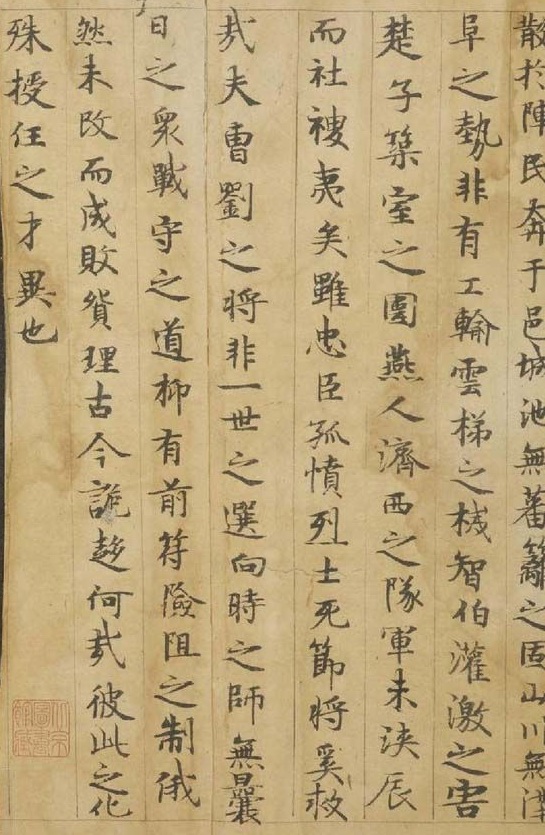 散於陣民奔于邑城池無蕃籬之固山川無溝
阜之勢非有工輸雲梯之械智伯灌激之害
楚子築室之圍燕人濟西之隊軍未浹辰
而社禝夷矣雖忠臣孤憤烈士死節將奚救
㢤夫曹劉之將非一世之選向時之師無曩
日之衆戰守之道抑有前符險阻之制俄
然未改而成敗貿理古今詭趍何㢤彼此之化
殊授任之才異也